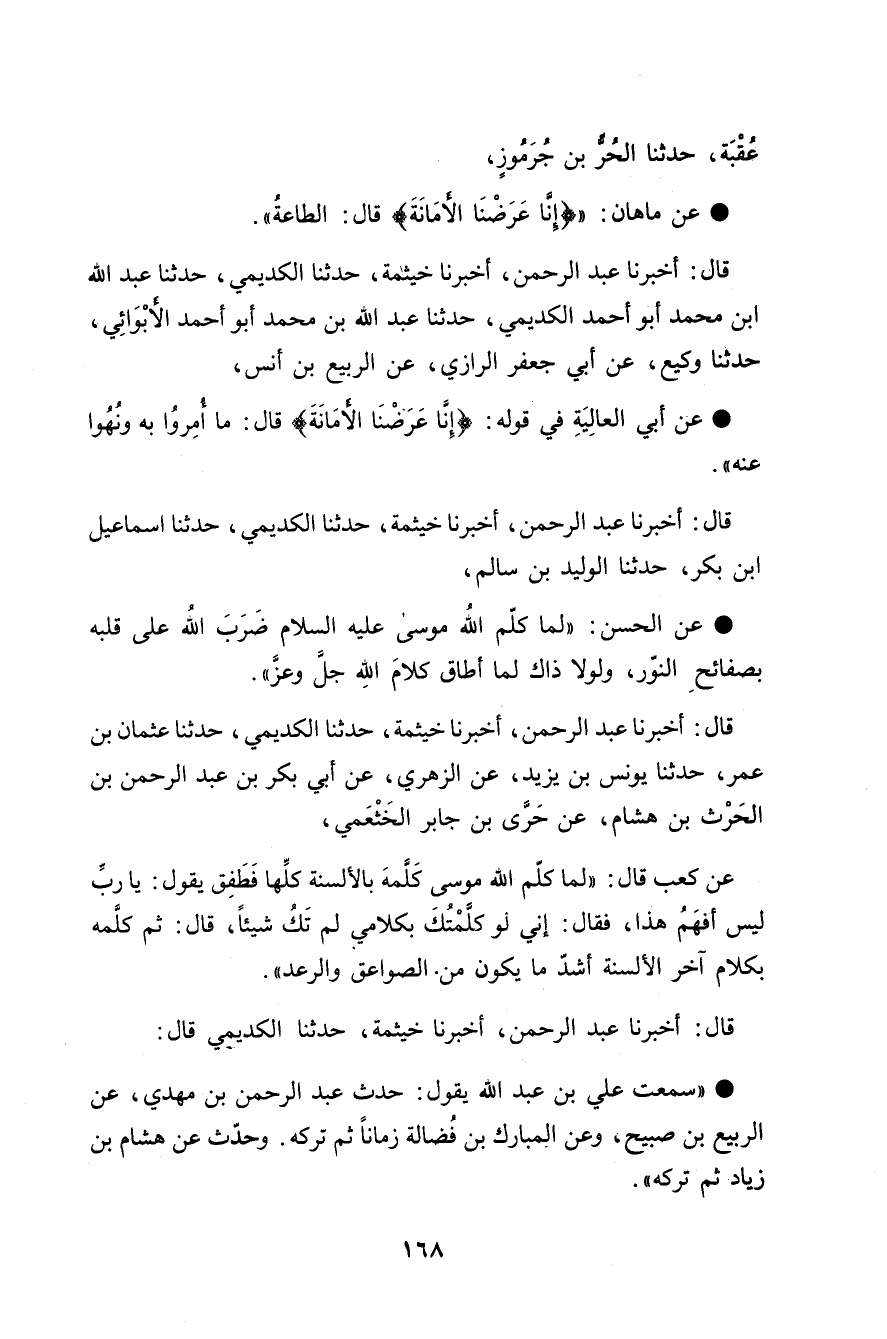 عُقْبَة، حدثنا الحُرُّ بن جُرَمُوزٍ،
● عن ماهان: «﴿إِنَّا عَرَضْنَا الأَمَانَةَ﴾ قال: الطاعةُ».
قال: أخبرنا عبد الرحمن، أخبرنا خيثمة، حدثنا الكديمي، حدثنا عبد الله
ابن محمد أبو أحمد الكديمي، حدثنا عبد الله بن محمد أبو أحمد الأَبْوَائِي،
حدثنا وكيع، عن أبي جعفر الرازي، عن الربيع بن أنس،
● عن أبي العالِيَةِ في قوله: ﴿إِنَّا عَرَضْنَا الأَمَانَةَ﴾ قال: ما أُمِروُا به ونُهُوا
عنه».
قال: أخبرنا عبد الرحمن، أخبرنا خيثمة، حدثنا الكديمي، حدثنا اسماعيل
ابن بكر، حدثنا الوليد بن سالم،
● عن الحسن: «لما كلّم اللهُ موسىٰ عليه السلام ضَرَبَ اللهُ على قلبه
بصفائحِ النوّر، ولولا ذاك لما أطاق كلامَ اللهِ جلَّ وعزَّ».
قال: أخبرنا عبد الرحمن، أخبرنا خيثمة، حدثنا الكديمي، حدثنا عثمان بن
عمر، حدثنا يونس بن يزيد، عن الزهري، عن أبي بكر بن عبد الرحمن بن
الحَرْث بن هشام، عن حَرَّى بن جابر الخَثْعَمي،
عن كعب قال: «لما كلّم الله موسى كَلَّمهَ بالألسنة كلِّها فَطَفِق يقول: يا ربِّ
ليس أفهَمُ هذا، فقال: إني لو كلَّمْتُكَ بكلامي لم تَكُ شيئاً، قال: ثم كلَّمه
بكلام آخر الألسنة أشدّ ما يكون من الصواعق والرعد».
قال: أخبرنا عبد الرحمن، أخبرنا خيثمة، حدثنا الكديمي قال:
● «سمعت علي بن عبد الله يقول: حدث عبد الرحمن بن مهدي، عن
الربيع بن صبيح، وعن المبارك بن فُضالة زماناً ثم تركه. وحدّث عن هشام بن
زياد ثم تركه».
١٦٨